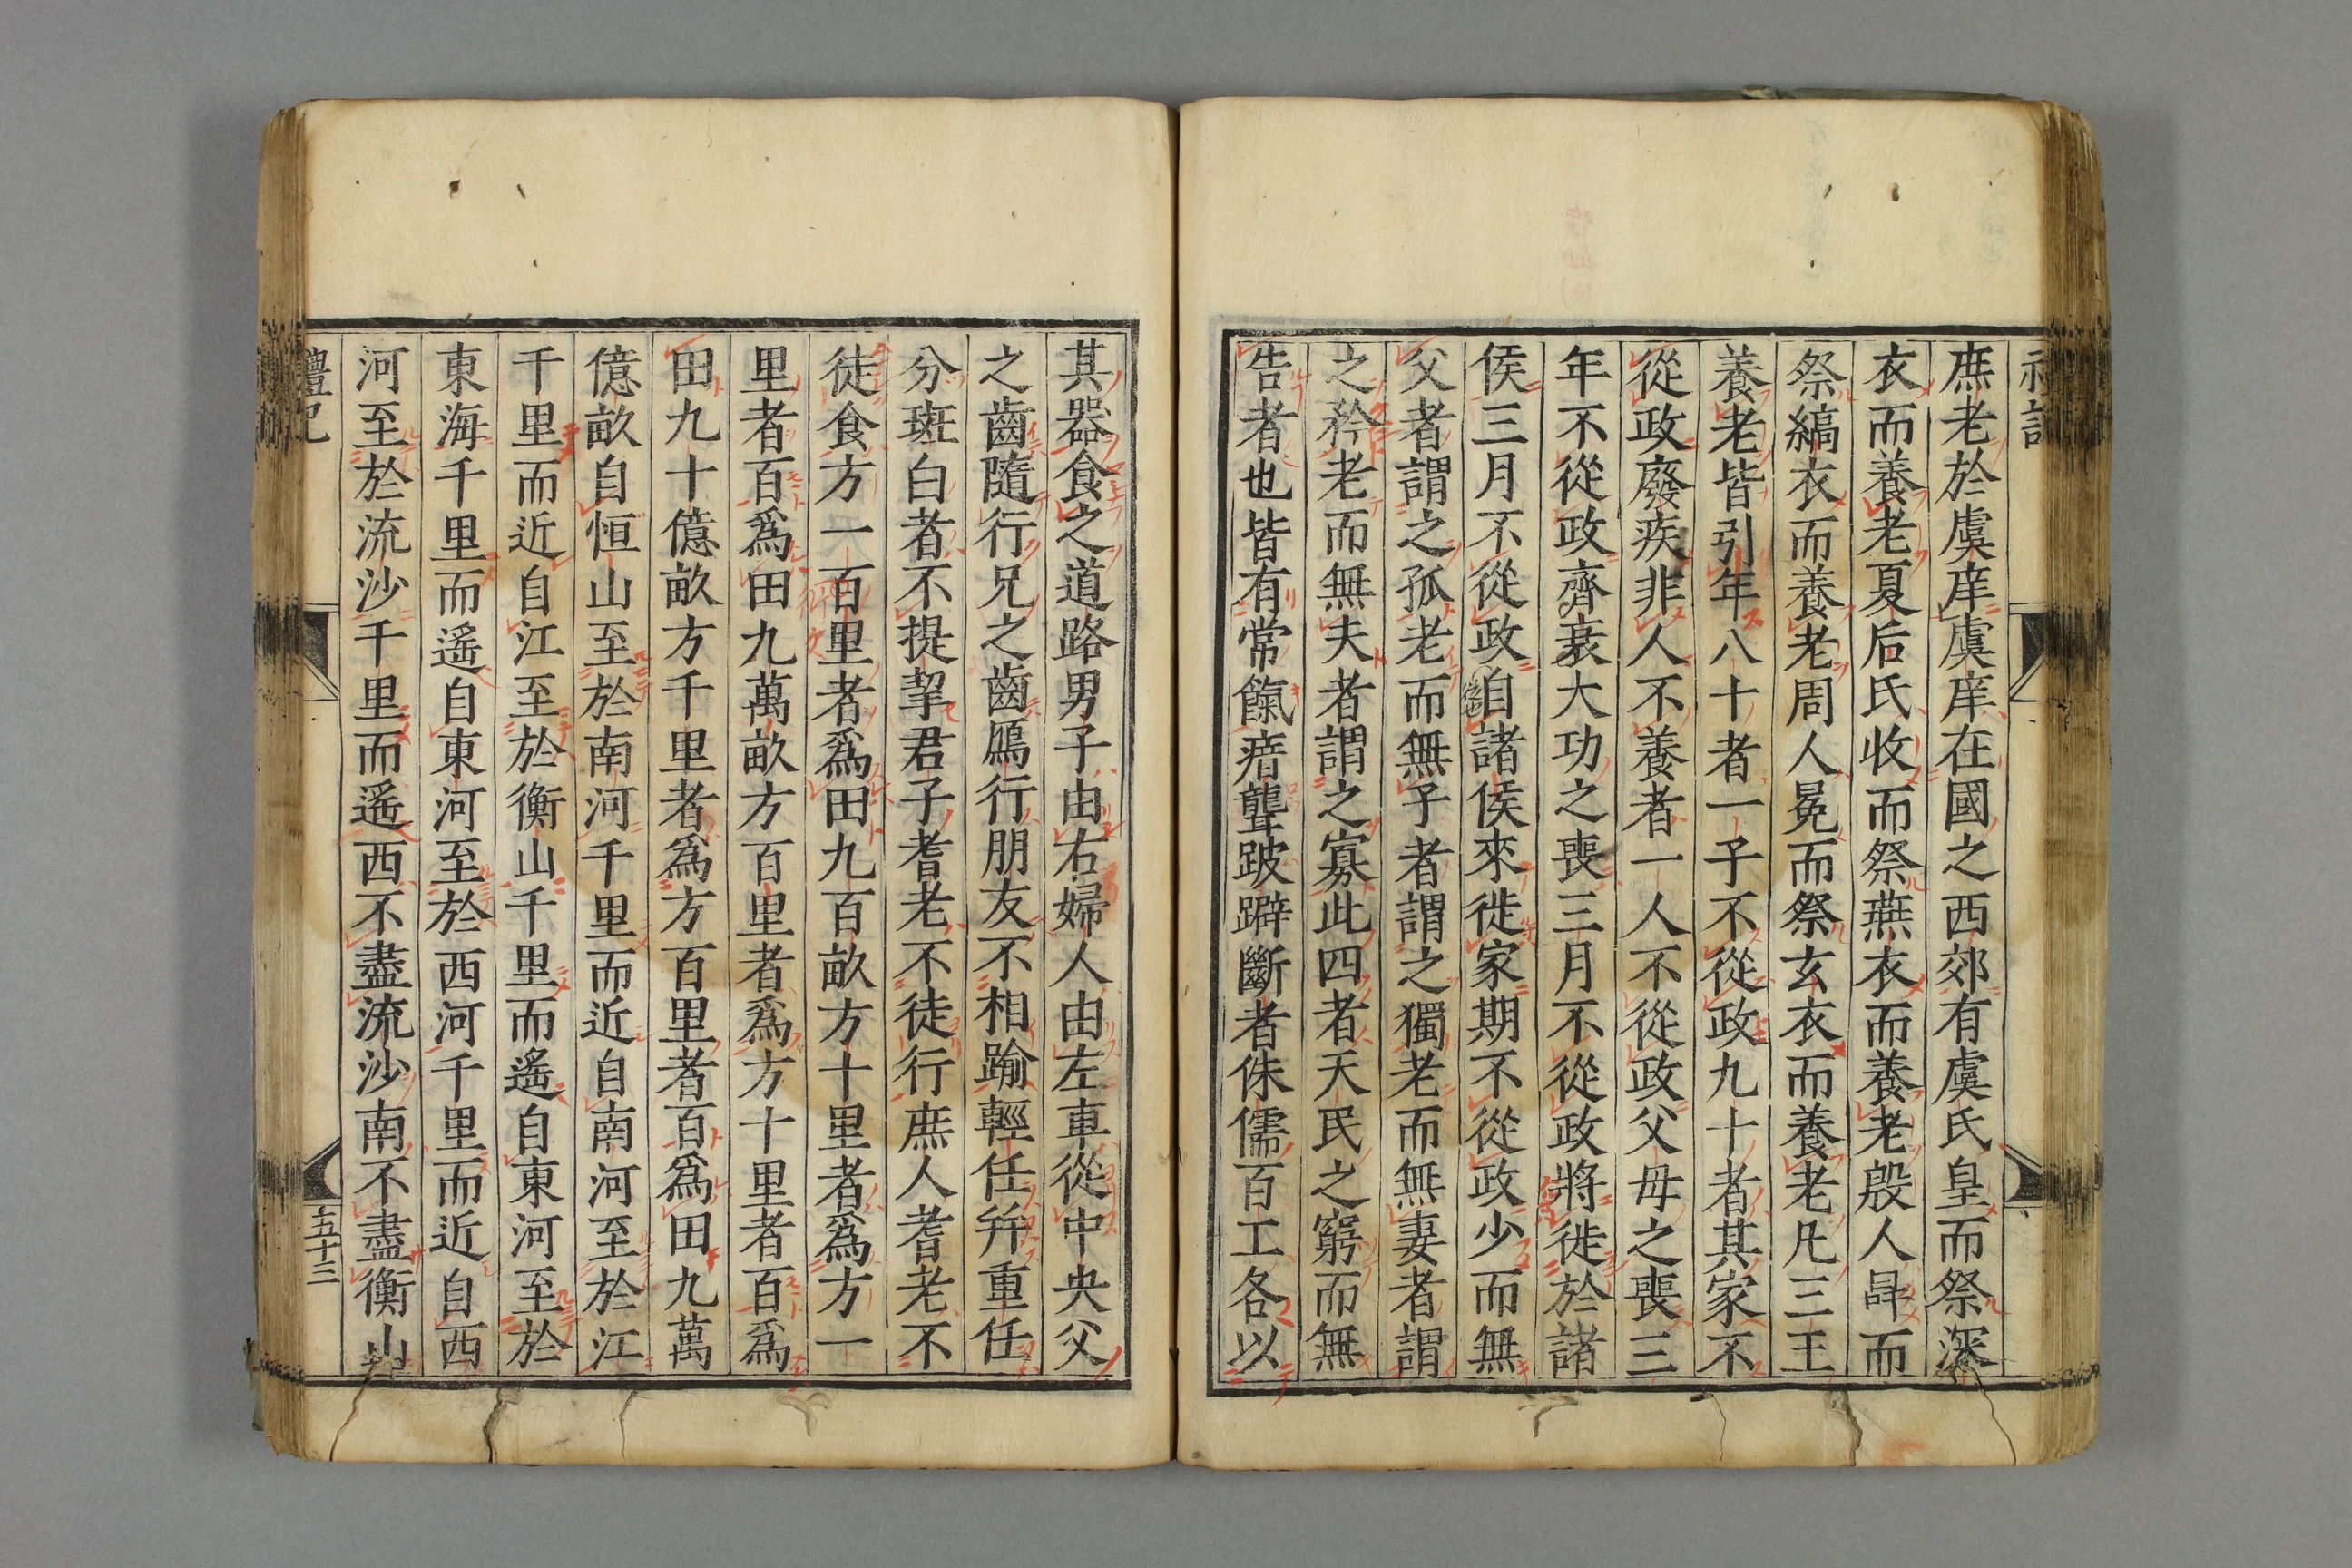 庶老於虞庠虞庠在國之西郊有虞氏皇而祭深
衣而養老夏后氏收而祭燕衣而養老殷人冔而
祭縞衣而養老周人冕而祭玄衣而養老凡三王
養老皆引年八十者一子不從政九十者其家不
從政廢疾非人不養者一人不從政父母之喪三
年不從政齊衰大功之喪三月不從政將徙於諸
侯三月不從政自諸侯來徙家期不從政少而無
父者謂之孤老而無子者謂之獨老而無妻者謂
之矜老而無夫者謂之寡此四者天民之窮而無
告者也皆有常餼瘖聾跛躃斷者侏儒百工各以
其器食之道路男子由右婦人由左車從中央父
之齒隨行兄之齒鴈行朋友不相踰輕任并重任
分斑白者不提挈君子耆老不徒行庶人耆老不
徒食方一百里者爲田九百畝方十里者爲方一
里者百爲田九萬畝方百里者爲方十里者百爲
田九十億畝方千里者爲方百里者百爲田九萬
億畝自恒山至於南河千里而近自南河至於江
千里而近自江至於衡山千里而遙自東河至於
東海千里而遙自東河至於西河千里而近自西
河至於流沙千里而遙西不盡流沙南不盡衡山
禮記
五十三